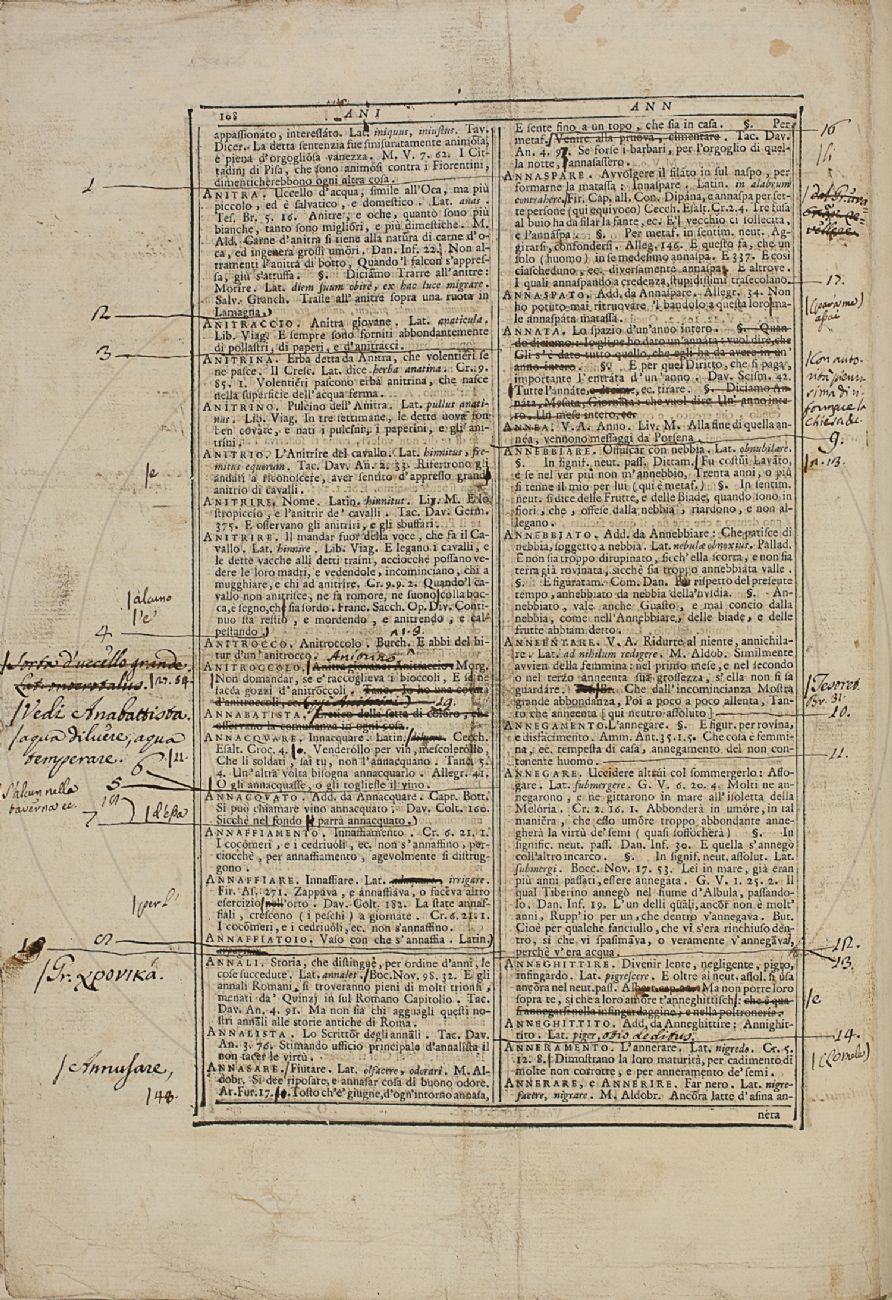 108
ANI
ANN
appassionato, interessato. Lat. iniquus, iniustus. Tav.
Dicer. La detta sentenzia fue smisuratamente animosa,
e piena d'orgogliosa vanezza. M. V. 7. 62. I Cit-
tadini di Pisa, che sono animosi contra i Fiorentini,
dimenticherebbono ogni altra cosa.
ANITRA. Uccello d'acqua, simile all'Oca, ma più
piccolo, ed è salvatico, e domestico. Lat. anas.
Tes. Br. 5. 16. Anitre, e oche, quanto sono più
bianche, tanto sono migliori, e più dimestiche. M.
Ald. Carne d'anitra si tiene alla natura di carne d'o-
ca, ed ingenera grossi umori. Dan. Inf. 22. Non al-
tramenti l'anitra di botto, Quando 'l falcon s'appres-
sa, giù s'attuffa. §. Diciamo Trarre all'anitre:
Morire. Lat. diem suum obire, ex hac luce migrare.
Salv. Granch. Trasse all'anitre sopra una ruota in
Lamagna.
ANITRACCIO. Anitra giovane. Lat. anaticula.
Lib. Viag. E sempre sono forniti abbondantemente
di pollastri, di paperi, e d'anitracci.
ANITRINA. Erba detta da Anitra, che volentieri se
ne pasce. Il Cresc. Lat. dice herba anatina. Cr. 9.
85. 1. Volentieri pascono erba anitrina, che nasce
nella superficie dell'acqua ferma.
ANITRINO. Pulcino dell'Anitra. Lat. pullus anati-
nus. Lib. Viag. In tre settimane, le dette uova son
ben covate, e nati i pulcini, i paperini, e gli ani-
trini.
ANITRIO. L'Anitrire del cavallo. Lat. hinnitus, fre-
mitus equorum. Tac. Dav. An. 2. 33. Riferirono gli
anditi a riconoscere, aver sentito d'appresso grande
anitrio di cavalli.
ANITRIRE, Nome. Latin. hinnitus. Liv. M. E lo
stropiccio, e l'anitrir de' cavalli. Tac. Dav. Germ.
375. E osservano gli anitriri, e gli sbuffari.
ANITRIRE. Il mandar fuor della voce, che fa il Ca-
vallo. Lat. hinnire. Lib. Viag. E legano i cavalli, e
le dette vacche alli detti traini, acciocchè possano ve-
dere le loro madri, e vedendole, incominciano, chi a
mugghiare, e chi ad anitrire. Cr. 9. 9. 2. Quando 'l ca-
vallo non anitrisce, ne fa romore, ne suono colla boc-
ca, è segno, che sia sordo. Franc. Sacch. Op. Div. Conti-
nuo sta restio, e mordendo, e anitrendo, e cal-
pestando.
ANITROCCO. Anitroccolo. Burch. E abbi del bi-
tur d'un'anitrocco.
ANITROCCOLO. Anitra giovane: Anitraccio. Morg.
Non domandar, se e' raccoglieva i bioccoli, E se ne
faceva gozzi d'anitroccoli.
d'anitroccoli, ec.
ANNABATTISTA. Eretico della setta di coloro, che
osservano la comunanza in ogni cosa.
ANNACQUARE. Innacquare. Latin. Cecch.
Esalt. Croc. 4. Venderóllo per vin, mescolerollo,
Che li soldati, sai tu, non l'annacquano. Tanc. 5.
4. Un'altra volta bisogna annacquarlo. Allegr. 41.
O gli annacquasse, o gli togliesse il vino.
ANNACQUATO. Add. da Annacquare. Capr. Bott.
Si può chiamare vino annacquato. Dav. Colt. 160.
Sicchè nel fondo parrà annacquato.
ANNAFFIAMENTO. Innaffiamento. Cr. 6. 21. 1.
I cocomeri, e i cedriuoli, ec. non s'annaffino, per-
ciocchè, per annaffiamento, agevolmente si distrug-
gono.
ANNAFFIARE. Innaffiare. Lat. irrigare.
Fir. As. 271. Zappava, e annaffiava, o faceva altro
esercizio nell'orto. Dav. Colt. 182. La state annaf-
fiali, crescono (i peschi) a giornate. Cr. 6. 21. 1.
I cocomeri, e i cedriuoli, ec. non s'annaffino.
ANNAFFIATOIO. Vaso con che s'annaffia. Latin.
ANNALI. Storia, che distingue, per ordine d'anni, le
cose succedute. Lat. annales. Boc. Nov. 98. 32. E gli
annali Romani, si troveranno pieni di molti trionfi,
menati da' Quinzj in sul Romano Capitolio. Tac.
Dav. An. 4. 91. Ma non sia chi agguagli questi no-
stri annali alle storie antiche di Roma.
ANNALISTA. Lo Scrittor degli annali. Tac. Dav.
An. 3. 76. Stimando uficio principalo d'annalista il
non tacer le virtù.
ANNASARE. Fiutare. Lat. olfacere, odorari. M. Al-
dobr. Si dee riposare, e annasar cosa di buono odore.
Ar. Fur. 17. Tosto ch'è giugne, d'ogn'intorno annasa,
E sente fino a un topo, che sia in casa. §. Per
metaf. Venire alla pruova, cimentare. Tac. Dav.
An. 4. 97. Se forse i barbari, per l'orgoglio di quel-
la notte, annasassero.
ANNASPARE. Avvolgere il filato in sul naspo, per
formarne la matassa: Innaspare. Latin. in alabrum
contrahere. Fir. Cap. all. Con. Dipana, e annaspa per set-
te persone (qui equivoco) Cecch. Esalt. Cr. 2. 4. Tre fusa
al buio ha da filar la fante, ec. E'l vecchio ci sollecita,
e l'annaspa. §. Per metaf. in sentim. neut. Ag-
girarsi, confondersi. Alleg. 146. E questo fa, che un
solo (huomo) in se medesimo annaspa. E 337. E così
ciascheduno, ec. diversamento annaspa. E altrove.
I quali annaspando a credenza, stupidissimi trasecolano.
ANNASPATO. Add. da Annaspare. Allegr. 34. Non
ho potuto mai, ritruovare 'l bandolo a questa loro ma-
le annaspata matassa.
ANNATA. Lo spazio d'un'anno intero. §. Quan-
do diciamo: Io gli ne ho dato un'annata: vuol dire, che
Gli s'è dato tutto quello, che egli ha da avere in un'
anno intero. §. E per quel Diritto, che si paga,
importante l'entrata d'un'anno. Dav. Scism. 42.
Tutte l'annate, e decime, ec. tirare. §. Diciamo An-
nata, Mesata, Giornata: che vuol dire Un' anno inte-
ro. Un mese intero, ec.
ANNEA. V. A. Anno. Liv. M. Alla fine di quella an-
nea, vennono messaggi da Porsena.
ANNEBBIARE. Offuscar con nebbia. Lat. obnubilare.
§. In signif. neut. pass. Dittam. Fu costui Lavato,
e se nel ver più non m'annebbio, Trenta anni, o più
si tenne il mio per lui (qui è metaf.) §. In sentim.
neut. si dice delle Frutte, e delle Biade, quando sono in
fiori, che, offese dalla nebbia, riardono, e non al-
legano.
ANNEBBIATO. Add. da Annebbiare: Che patisce di
nebbia, soggetto a nebbia. Lat. nebulæ obnoxius. Pallad.
E non sia troppo dirupinato, sicch'ella scorra, e non sia
terra già rovinata, sicchè sia troppo annebbiata valle.
§. E figuratam. Com. Dan. Per rispetto del presente
tempo, annebbiato da nebbia della 'nvidia. §. An-
nebbiato, vale anche Guasto, e mal concio dalla
nebbia, come nell'Annebbiare, delle biade, e delle
frutte abbiam detto.
ANNEENTARE. V. A. Ridurre al niente, annichila-
re. Lat. ad nihilum redigere. M. Aldob. Similmente
avvien della femmina: nel primo mese, e nel secondo
o nel terzo anneenta sua grossezza, s'ella non si fa
guardare. Che dall'incomincianza Mostra
grande abbondanza, Poi a poco a poco allenta, Tan-
to che anneenta [qui neutro assoluto]
ANNEGAMENTO. L'annegare. §. E figur. per rovina,
e disfacimento. Amm. Ant. 35. 1. 5. Che cosa è femmi-
na, ec. tempesta di casa, annegamento del non con-
tenente huomo.
ANNEGARE. Uccidere altrui col sommergerlo: Affo-
gare. Lat. submergere. G. V. 6. 20. 4. Molti ne an-
negarono, e ne gittarono in mare all'isoletta della
Meloria. Cr. 2. 16. 1. Abbonderà in umore, in tal
maniera, che esso umore troppo abbondante anne-
gherà la virtù de' semi (quasi soffocherà) §. In
signific. neut. pass. Dan. Inf. 30. E quella s'annegò
coll'altro incarco. §. In signif. neut. assolut. Lat.
submergi. Bocc. Nov. 17. 53. Lei in mare, già eran
più anni passati, essere annegata. G. V. 1. 25. 2. Il
qual Tiberino annegò nel fiume d'Albula, passando-
so. Dan. Inf. 19. L'un delli quali, ancor non è molt'
anni, Rupp'io per un, che dentro v'annegava. But.
Cioè per qualche fanciullo, che vi s'era rinchiuso den-
tro, sì che vi spasimava, o veramente v'annegava,
perchè v'era acqua.
ANNEGHITTIRE. Divenir lente, negligente, pigro,
infingardo. Lat. pigrescere. E oltre al neut. assol. si usa
ancora nel neut. pass. Ma non porre loro
sopra te, sì che a loro amore t'anneghittisch: che è qua-
ANNEGHITTITO. Add. da Anneghittire: Annighit-
tito. Lat. piger, otio deditus.
ANNERAMENTO. L'annerare. Lat. nigredo. Cr. 5.
12. 8. Dimostrano la loro maturità, per cadimento di
molte non corrotte, e per anneramento de' semi.
ANNERARE, e ANNERIRE. Far nero. Lat. nigre-
facere, nigrare. M. Aldobr. Ancora latte d'asina an-
nera
1
2
3
e
alcuno
l'e'
4
Sorta d'uccello grande.
Lat. onocrotalus.
Vedi Anabattista.
acqua diluere, aqua
temperare.
11
6
5
S'alcun nella
taverna ec.
7
d'essa
per l'
Gr. χρονικά.
Annusare,
48.
16
li
17.
9.
n. 13.
Tesoret.
Br. 31.
10.
11.
12.
13.
e
14.